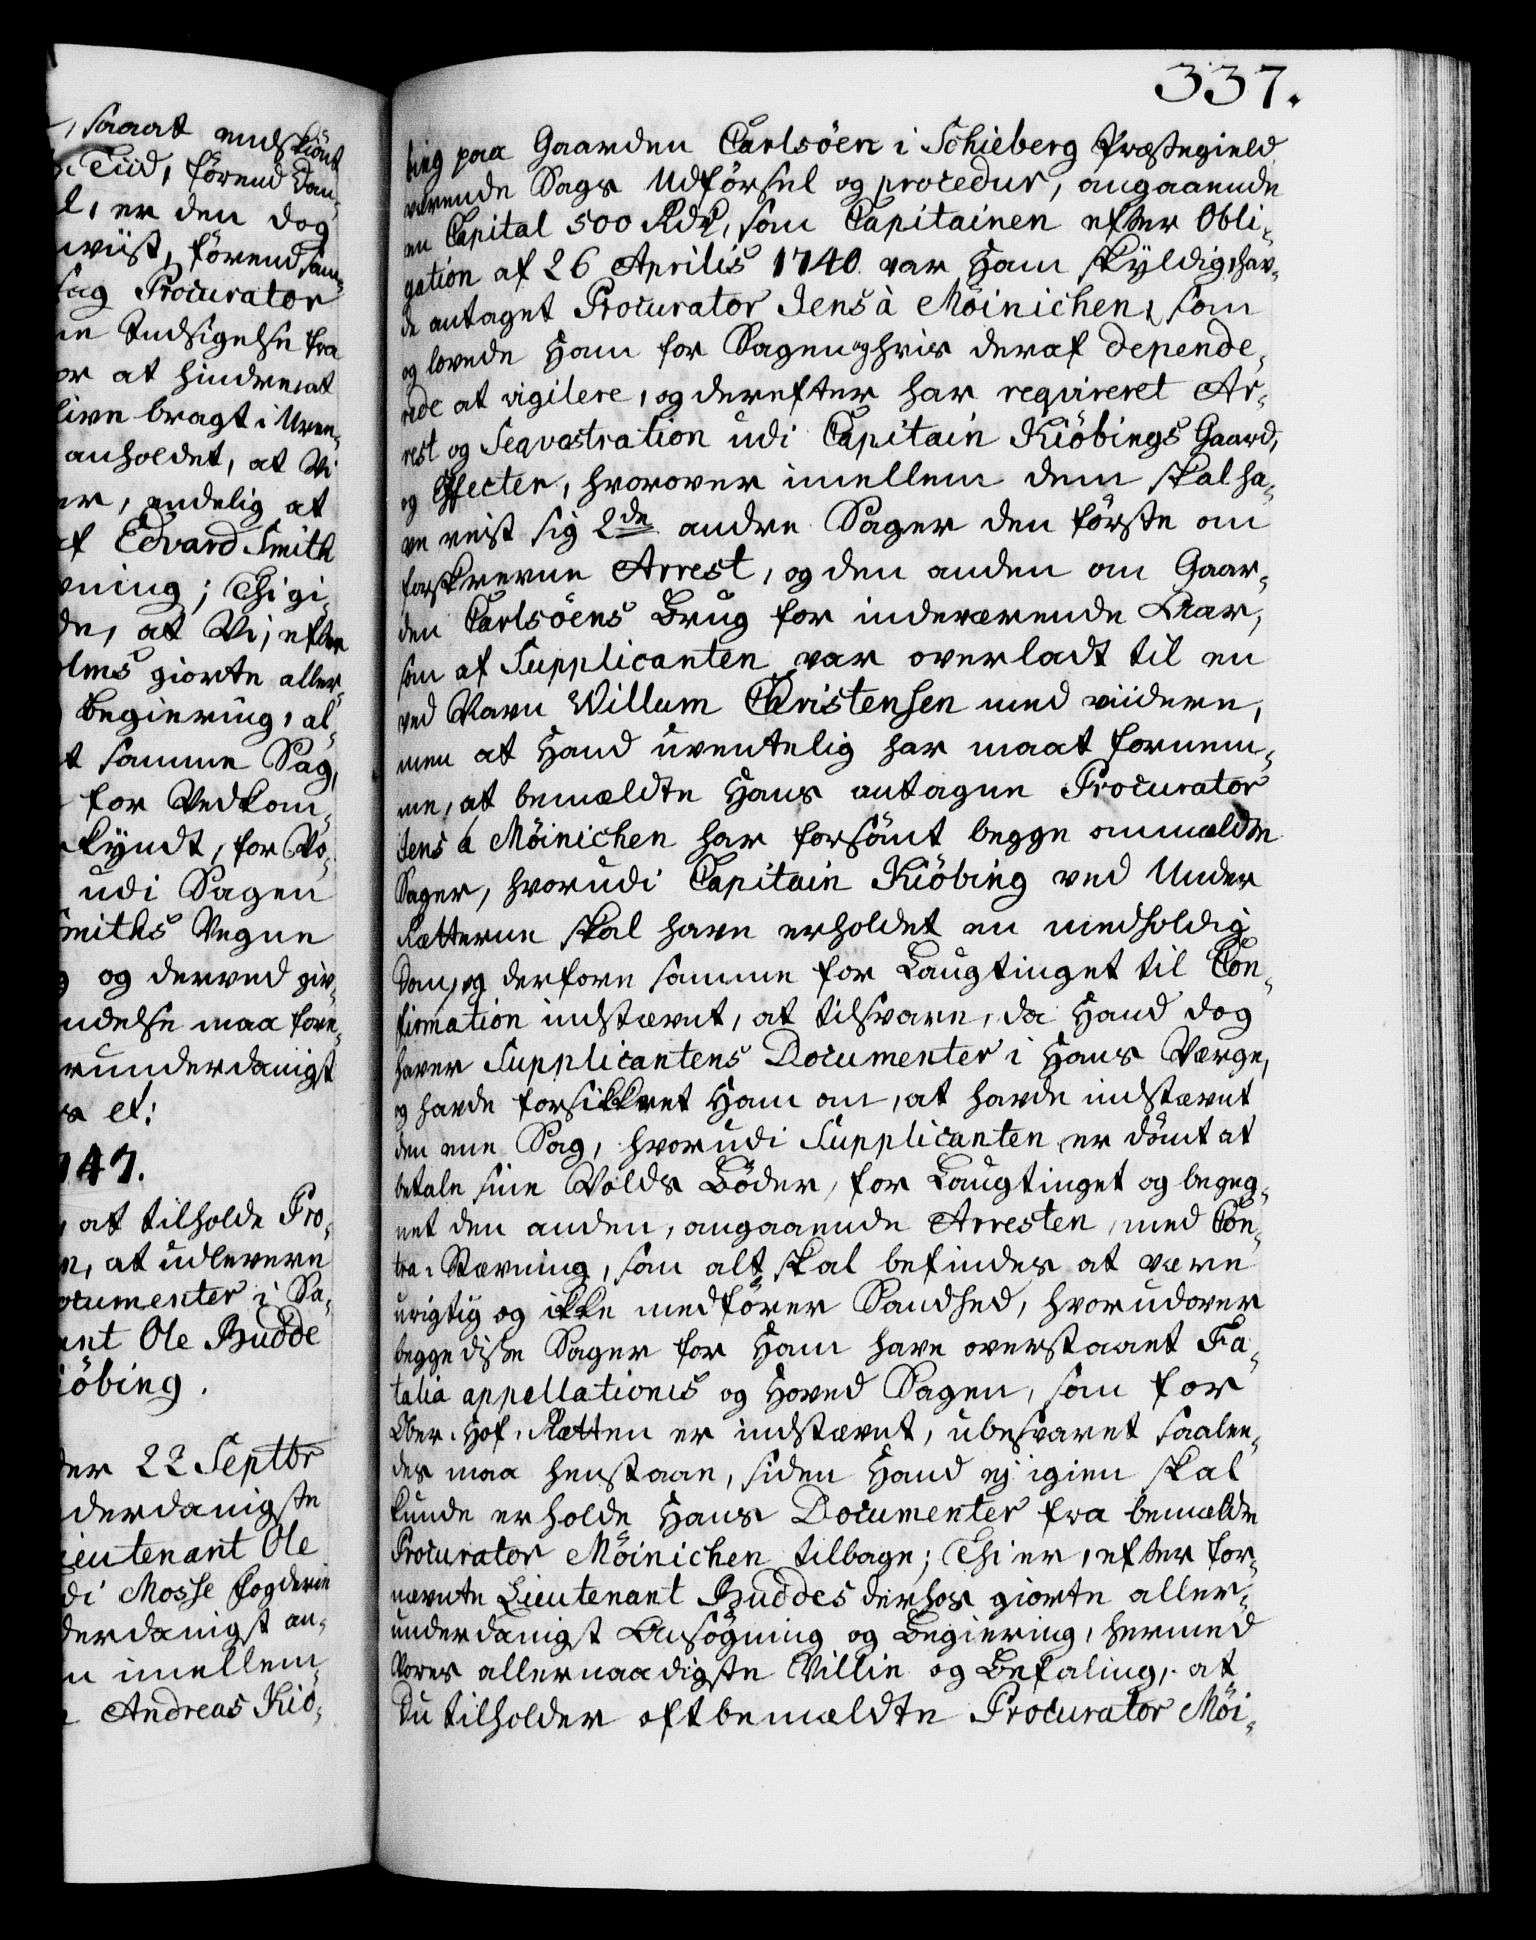 337.
, saaat endskiönt
Tiid, förend Dom,
l, er den dog
wiist, förend sam,
sag Procurator
ne Indsigelse fra
or at hindre, at
live bragt i Uven,
anholdet, at Vi
er, endelig at
af Edvard Smith
vning; Thi gi,
de, at Vi, efter
olms giorte aller,
Begiering, al,
t samme Sag,
for Vedkom,
kyndt, for Vo,
udi Sagen
Smiths Vegne
og derved giv,
ndelse maa fore,
runderdanigst
a et:
147.
, at tilholde Pro,
n, at udlevere
ocumenter i Sa,
ant Ole Budde
iöbing.
der 22 Septbr
derdanigste
ieutenant Ole
di Mosse fogderie
derdanigst an,
n imellem
Andreas Kiö,
bing paa Gaarden Carlsöen i Schieberg Præstegield
værende Sags Udförsel og procedur, angaaende
en Capital 500 Rdr, som Capitainen efter Obli,
gation af 26 Aprilis 1740 var Ham skyldig, hav,
de antaget Procurator Jens à Möinichen, som
og lovede Ham for Sagen og hvis deraf depende,
rede at vigilere, og derefter har reqvireret Ar,
rest og Seqvæstration udi Capitain Kiöbings Gaard,
og Effecter, hvorover imellem dem skal ha,
ve reist sig 2de andre Sager den förste om
forskrevne Arrest, og den anden om Gaar,
den Carlsöens Brug for indeværende Aar,
som af Supplicanten var overladt til en
ved Navn Willum Christensen med viidere,
men at Hand uventelig har maat fornem,
me, at bemældte Hans antagne Procurator
Jens à Möinichen har forsömt begge ommældte
Sager, hvorudi Capitain Kiöbing ved Under
Rætterne skal have erholdet en medholdig
Dom, og derfore samme for Laugtinget til Con,
firmation indstævnt, at tilsvare, da Hand dog
haver Supplicantens Documenter i Hans Værge,
og havde forsikkret Ham om, at havde indstævnt
den ene Sag, hvorudi Supplicanten er dömt at
betale sine Volds Böder, for Laugtinget og begeg,
net den anden, angaaende Arresten, med Con,
tra-Stævning, som alt skal befindes at være
urigtig og ikke medförer Sandhed, hvorudover
begge disse Sager for Ham have overstaaet Fa,
talia appellationis og Hoved Sagen, som for
Ober-Hof-Rætten er indstævnt, ubesvaret saalen,
des maa henstaae, siden Hand ej igien skal
kunde erholde Hans Documenter fra bemældte
Procurator Möinichen tilbage; Thi er, efter for,
nævnte Lieutenant Buddes derhos giorte aller,
underdanigst Ansögning og Begiering, hermed
Vores allernaadigste Villie og Befaling, at
Du tilholder oftbemældte Procurator Möi,